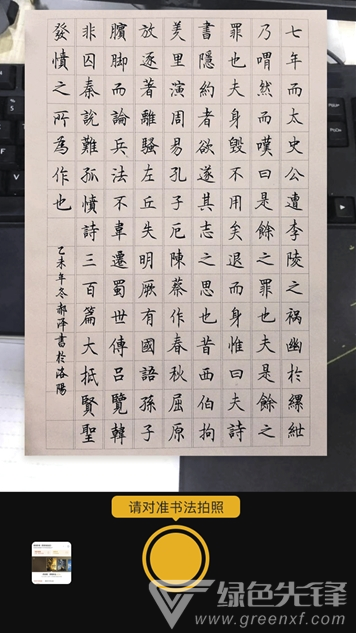 七年而太史公遭李陵之祸幽於縲紲
乃喟然而嘆曰是餘之罪也夫是餘之
罪也夫身毀不用矣退而身惟曰夫詩
書隱約者欲遂其志之思也昔西伯拘
羑里演周易孔子厄陳蔡作春秋屈原
放逐著離騷左丘失明厥有國語孫子
臏脚而論兵法不韋遷蜀世傳呂覽韓
非囚秦說難孤憤詩三百篇大抵賢聖
發憤之所為作也
乙未年冬郝泽書於洛陽
请对准书法拍照
绿色先锋
www.greenxf.com